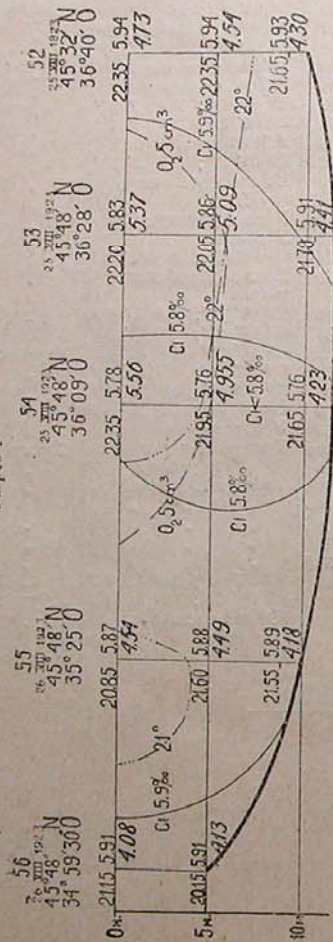 56
26 VIII 1923
45°48′ N
34°59′30″ O
55
26 VIII 1923
45°48′ N
35°25′ O
54
25 VIII 1923
45°48′ N
36°09′ O
53
25 VIII 1923
45°48′ N
36°28′ O
52
25 VIII 1923
45°32′ N
36°40′ O
0м.
21.15 5.91
4.08
20.85 5.87
4.54
22.35 5.78
5.56
22.20 5.83
5.37
22.35 5.94
4.73
Cl 5.9‰
21°
O₂ 5 cm³
Cl 5.8‰
Cl 5.8‰
O₂ 5 cm³
Cl 5.9‰
5м.
20.15 5.91
4.13
21.60 5.88
4.49
21.95 5.76
4.955
22.05 5.86
5.09
22.35 5.94
4.54
22°
22°
Cl<5.8‰
10м.
21.55 5.89
4.18
21.65 5.76
4.23
21.70 5.91
4.41
21.65 5.93
4.30